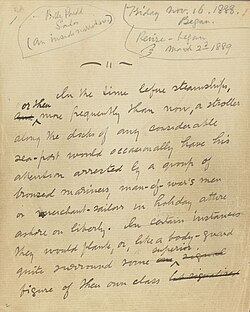 Billy Budd
Sailor
(An inside narrative)
(Friday Nov. 16, 1888.
Began.
Revise - began
March 2d 1889
In the time before steamships,
or then more frequently than now, a stroller
along the docks of any considerable
sea-port would occasionally have his
attention arrested by a group of
bronzed mariners, man-of-war's men
or merchant-sailors in holiday attire
ashore on liberty. In certain instances
they would flank, or, like a body-guard
quite surround some superior
figure of their own class